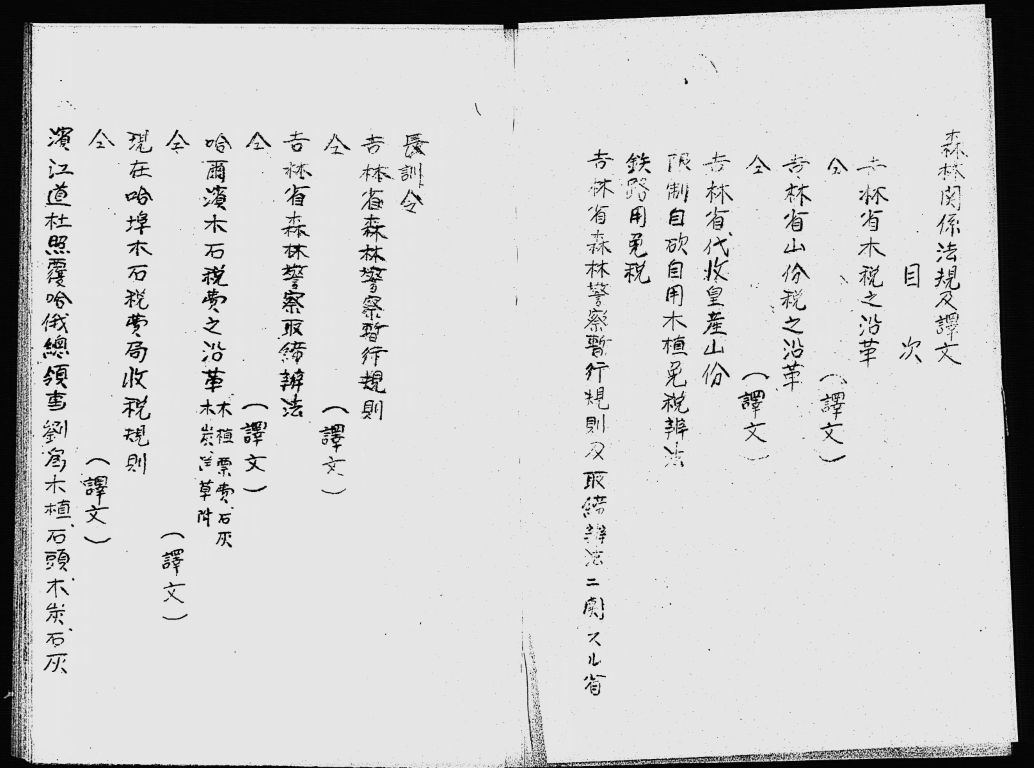 森林関係法規及譯文
目次
吉林省木税之沿革
仝　（譯文）
吉林省山份税之沿革
仝　（譯文）
吉林省代收皇産山份
限制自砍自用木植免税辨法
鉄路用免税
吉林省森林警察暫行規則及取締辨法ニ関スル省
長訓令
吉林省森林警察暫行規則
仝　（譯文）
吉林省森林警察取締辨法
仝　（譯文）
哈爾濱木石税費之沿革 木植票費、石灰
木炭、洋草附
仝　（譯文）
現在哈埠木石税費局收税規則
仝　（譯文）
濱江道杜照覆哈俄總領事劉為木植、石頭、木炭、石灰